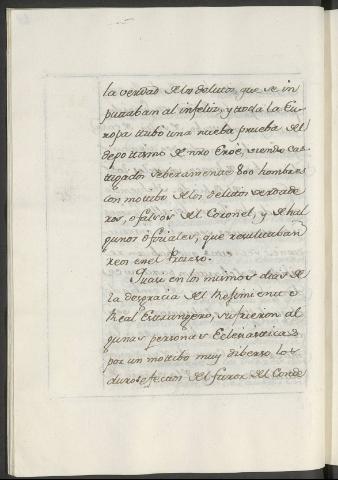 la verdad de los delitos, que se im
putaban al infeliz, y toda la Eu-
ropa tubo una nueba prueba del
depotismo de nro Eroe, siendo cas-
tigados seberamente 800 hombres
con motibo de los delitos verdade
ros, o falsos del Coronel, y de hal
gunos oficiales, que resultaban
reos en el Proceso.
Quasi en los mismos dias de
la desgracia del Regimiento
Real Estrangero, sufrieron al
gunas personas Eclesiasticas
por un motibo muy diberso, los
duros efectos del furor del Conde